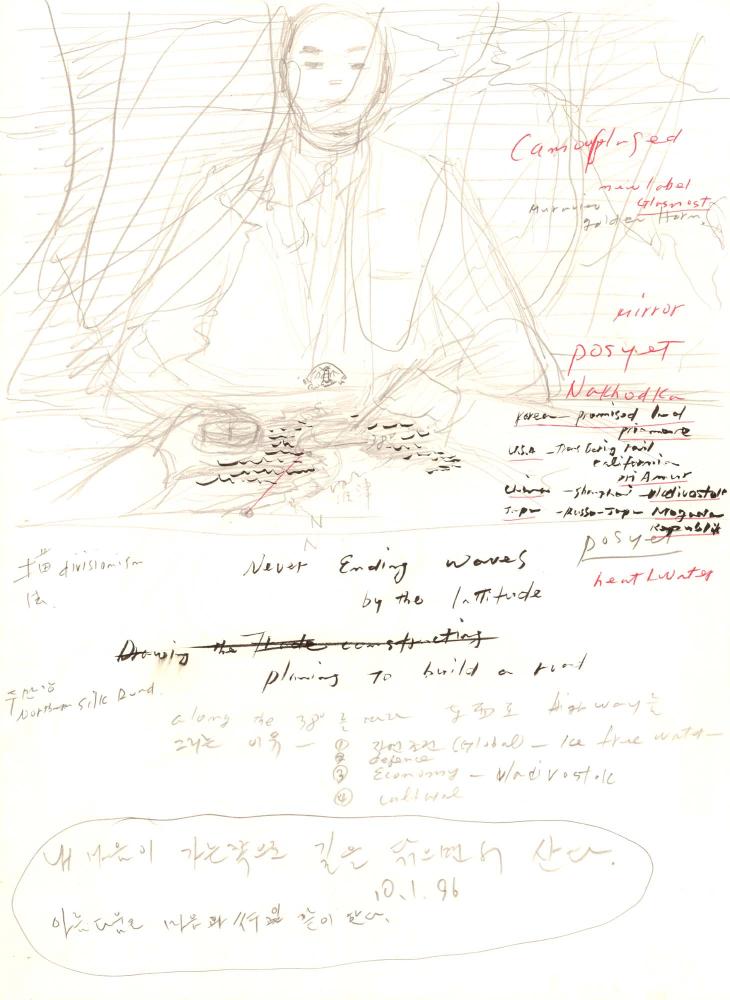 Camouflaged
new label
Glasnost
golden Horn.
Mirror
posyet
Nakhodka
Korean promised land
U.S.A
California
pri Amur
Chinese - Shanghai - Vladivostok
Japan - Russo-Japan
38°
N
posyet
heat & water
描 divisionism
法.
Never Ending waves
by the lattitude
Drawing the Trade constructing
planing to build a road
Northern Silk Road.
along the 38° highway를
그리는 이유 - ① 자연조건 (Global) - Ice free water
② defence
③ Economy - Vladivostok
④ cultural
내 마음이 가는쪽으로 길을 닦으면서 산다.
10.1.96
아름다움은 마음과 같이 한다.